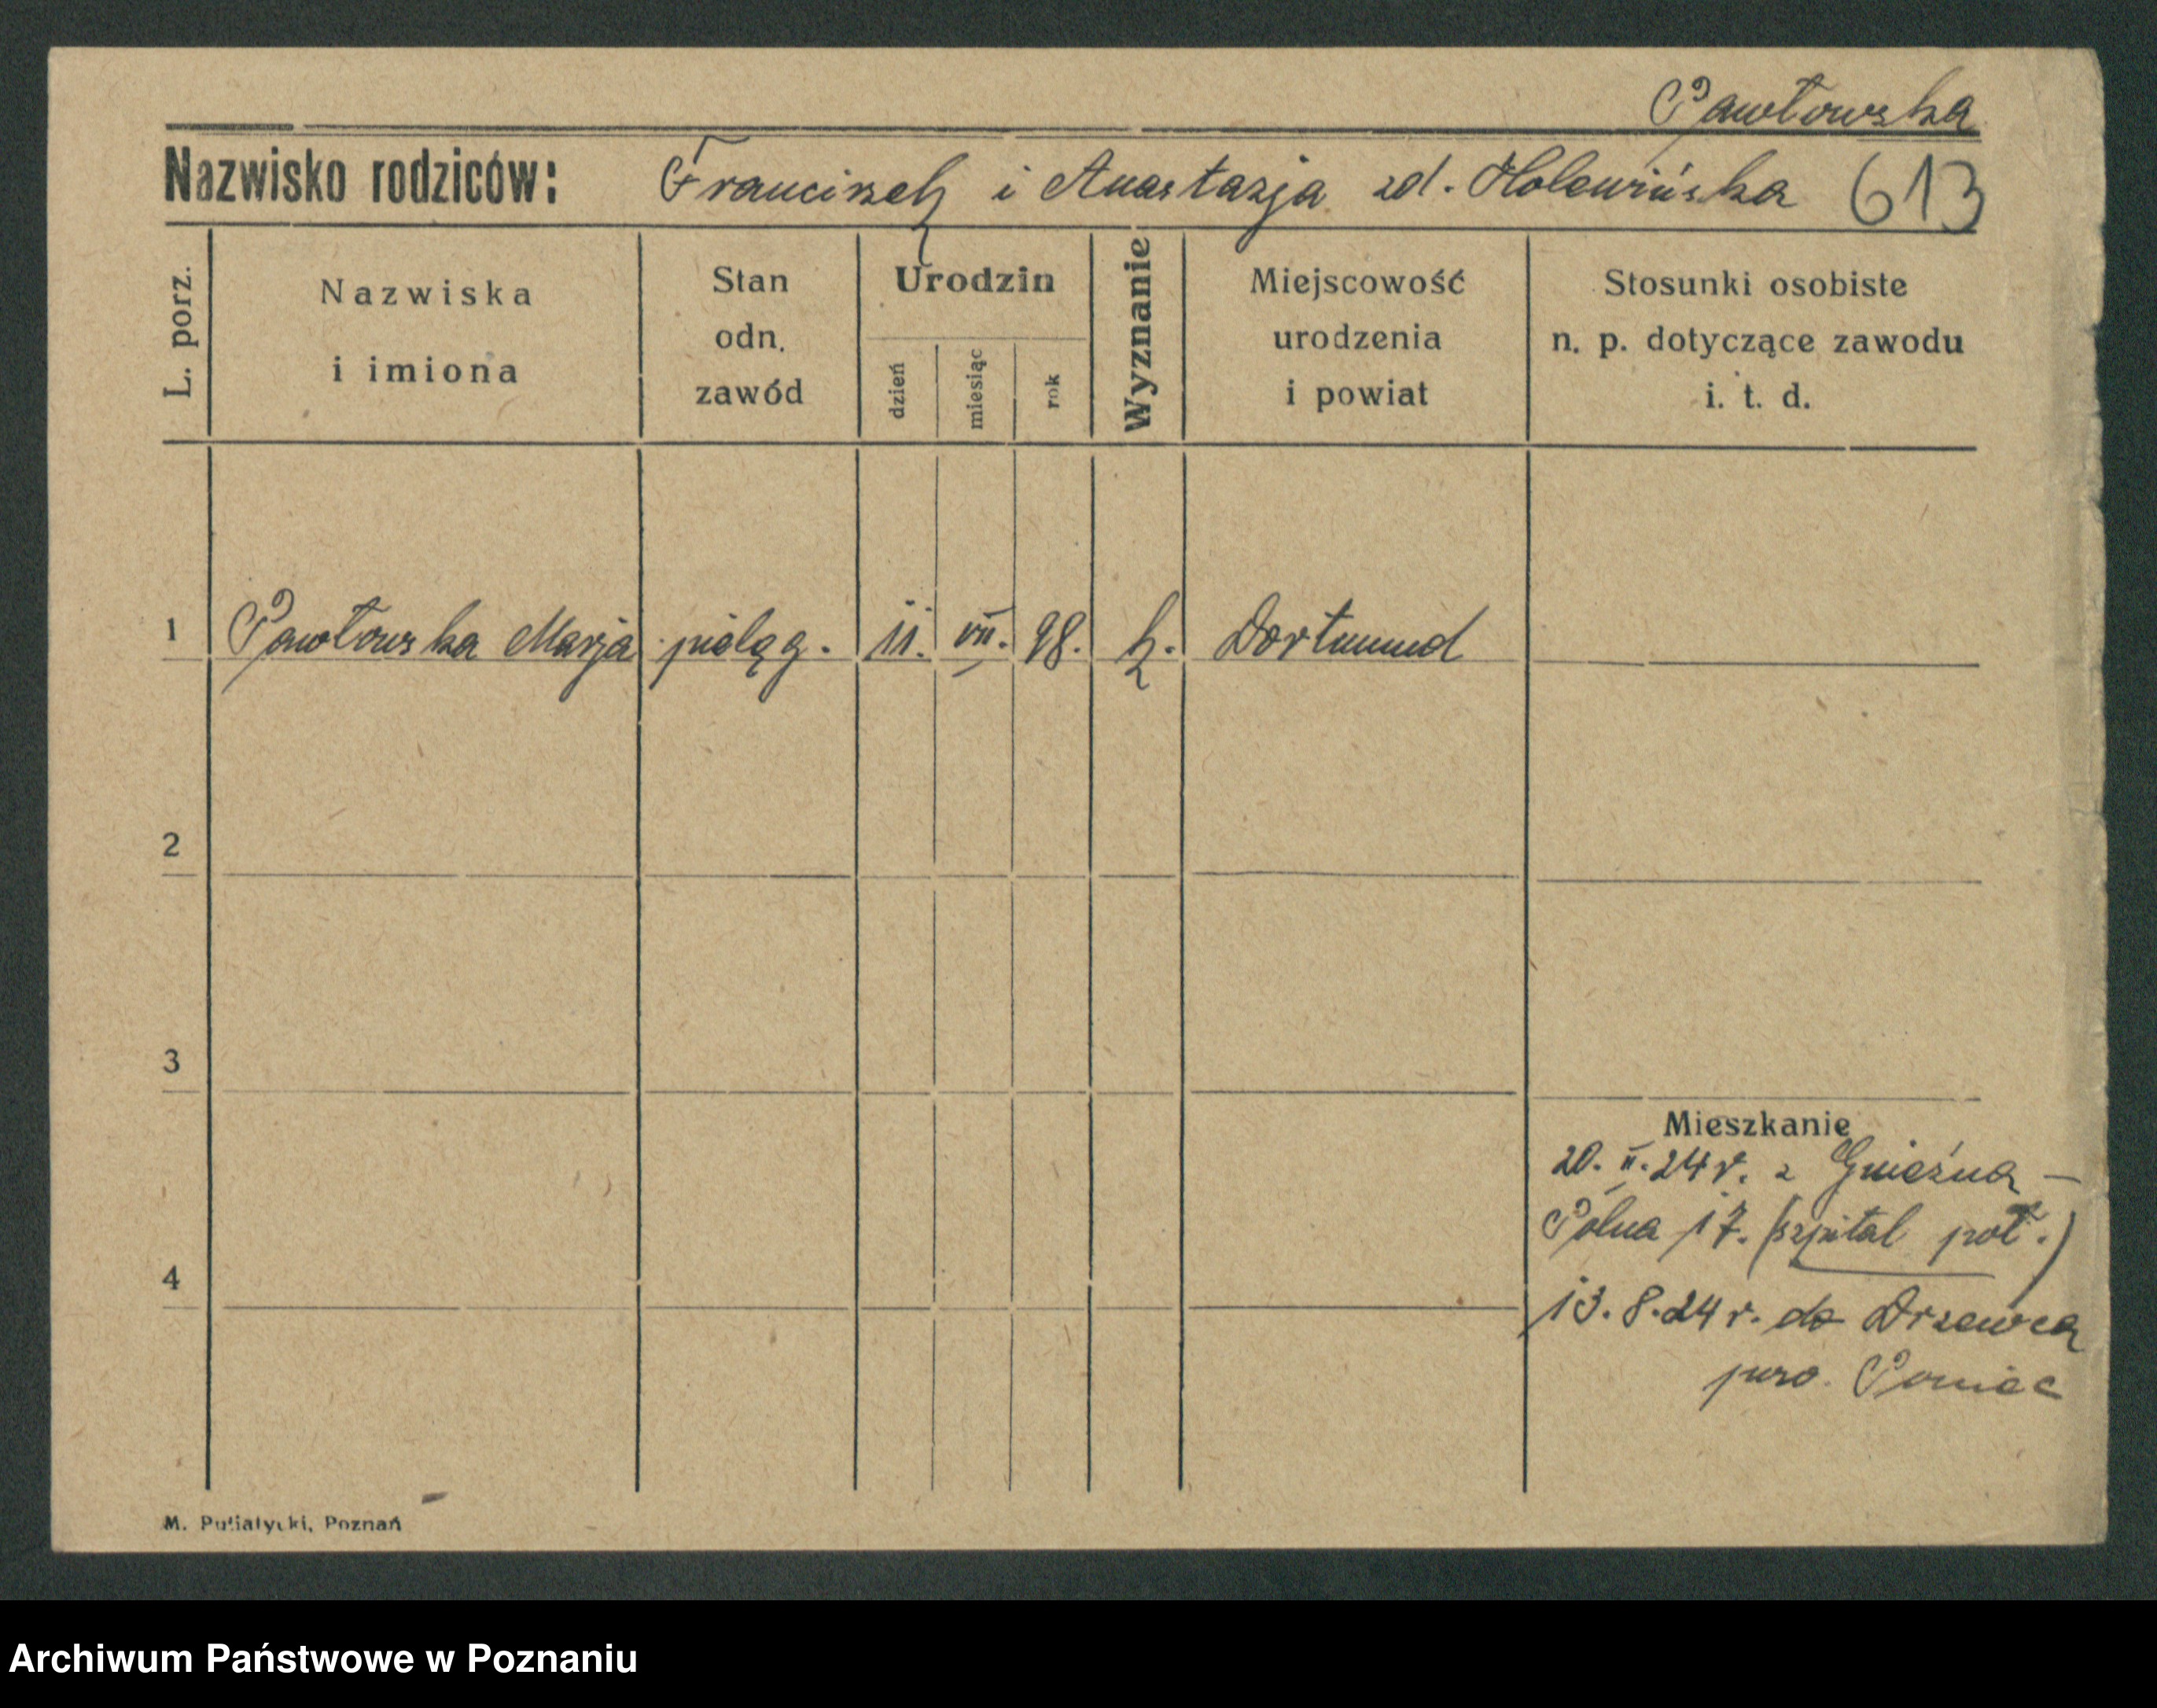 Pawłowska
Nazwisko rodziców: Franciszek i Anastazja zd. Holewińska 613
L. porz.
Nazwiska
i imiona
Stan
odn.
zawód
Urodzin
dzień
miesiąc
rok
Wyznanie
Miejscowość
urodzenia
i powiat
Stosunki osobiste
n. p. dotyczące zawodu
i. t. d.
1 Pawłowska Marja pielęg. 11. VII. 98. k. Dortmund
2
3
Mieszkanie
20. II. 24 r. z Gniezna —
Polna 17. (szpital poł.)
4
13. 8. 24 r. do Drzewca
pow. Poniec
M. Putiatycki, Poznań
Archiwum Państwowe w Poznaniu